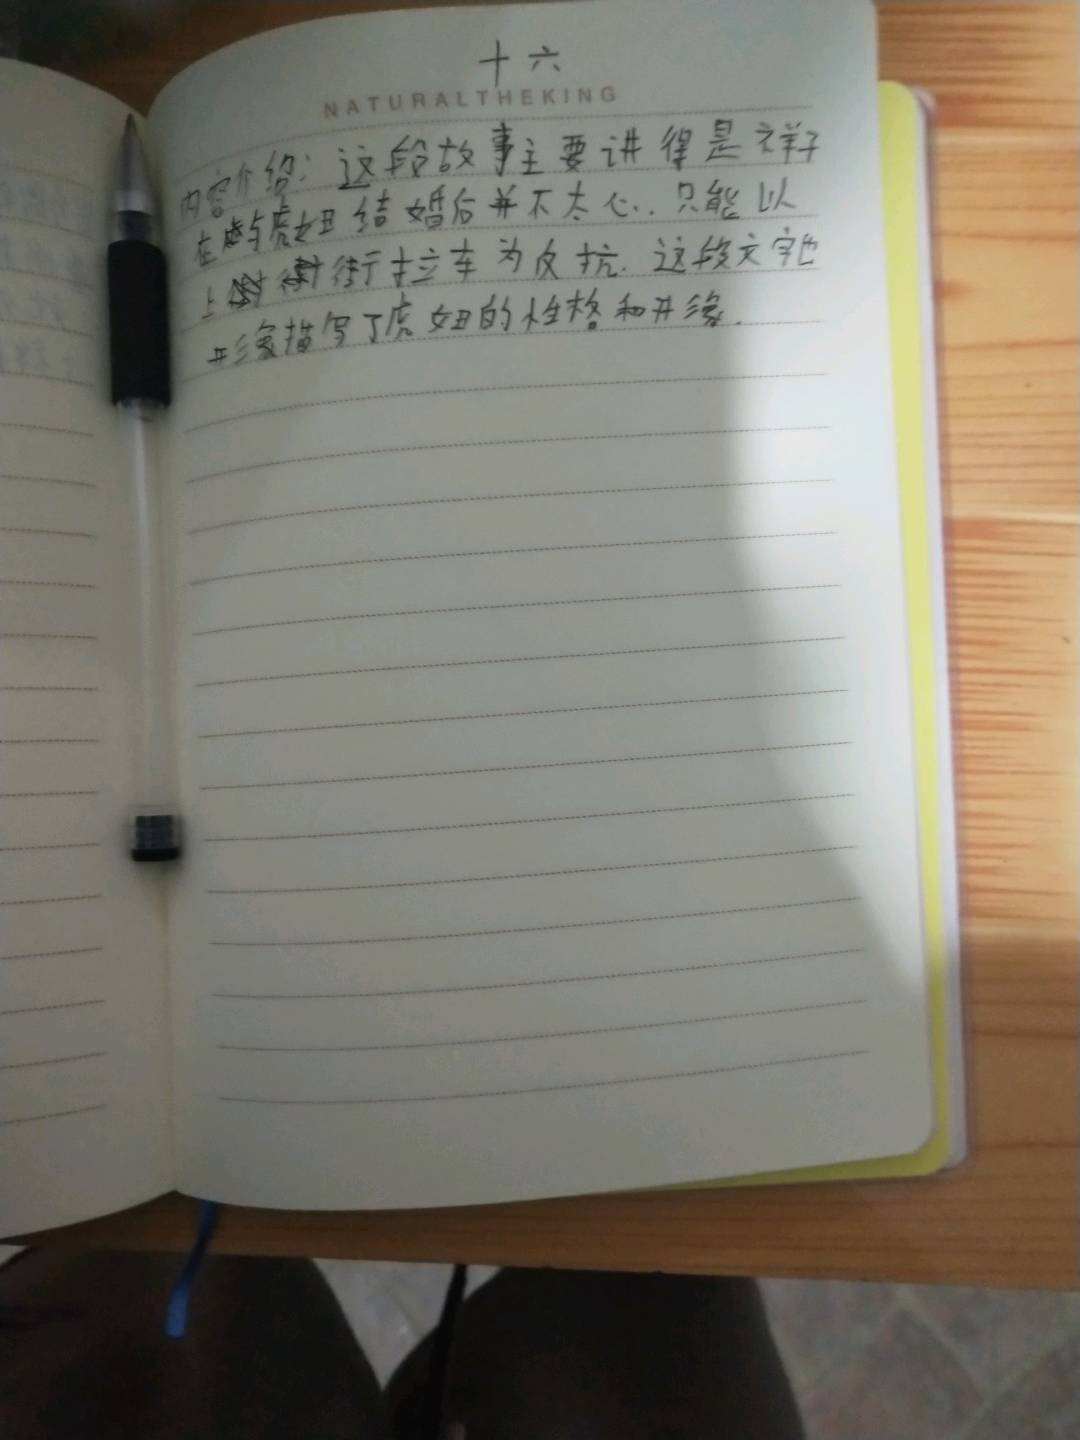 十六
NATURALTHEKING
内容介绍：这段故事主要讲得是祥子
在与虎妞结婚后并不太心.只能以
上街拉车为反抗.这段文字也
形象描写了虎妞的性格和形象.